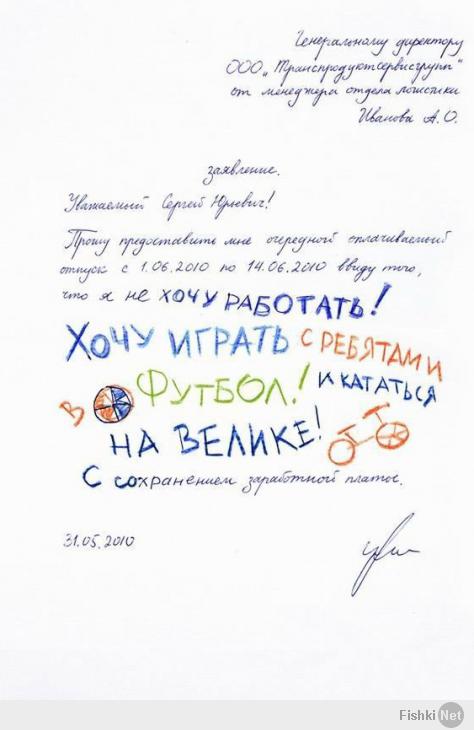 Генеральному директору
ООО „Транспродуктсервисгрупп"
от менеджера отдела логистики
Иванова А.О.
заявление.
Уважаемый Сергей Юрьевич!
Прошу предоставить мне очередной оплачиваемый
отпуск с 1.06.2010 по 14.06.2010 ввиду того,
что я не хочу РАБОТАТЬ!
ХОЧУ ИГРАТЬ С РЕБЯТАМИ
В ФУТБОЛ! И КАТАТЬСЯ
НА ВЕЛИКЕ!
С сохранением заработной платы.
31.05.2010
Fishki Net